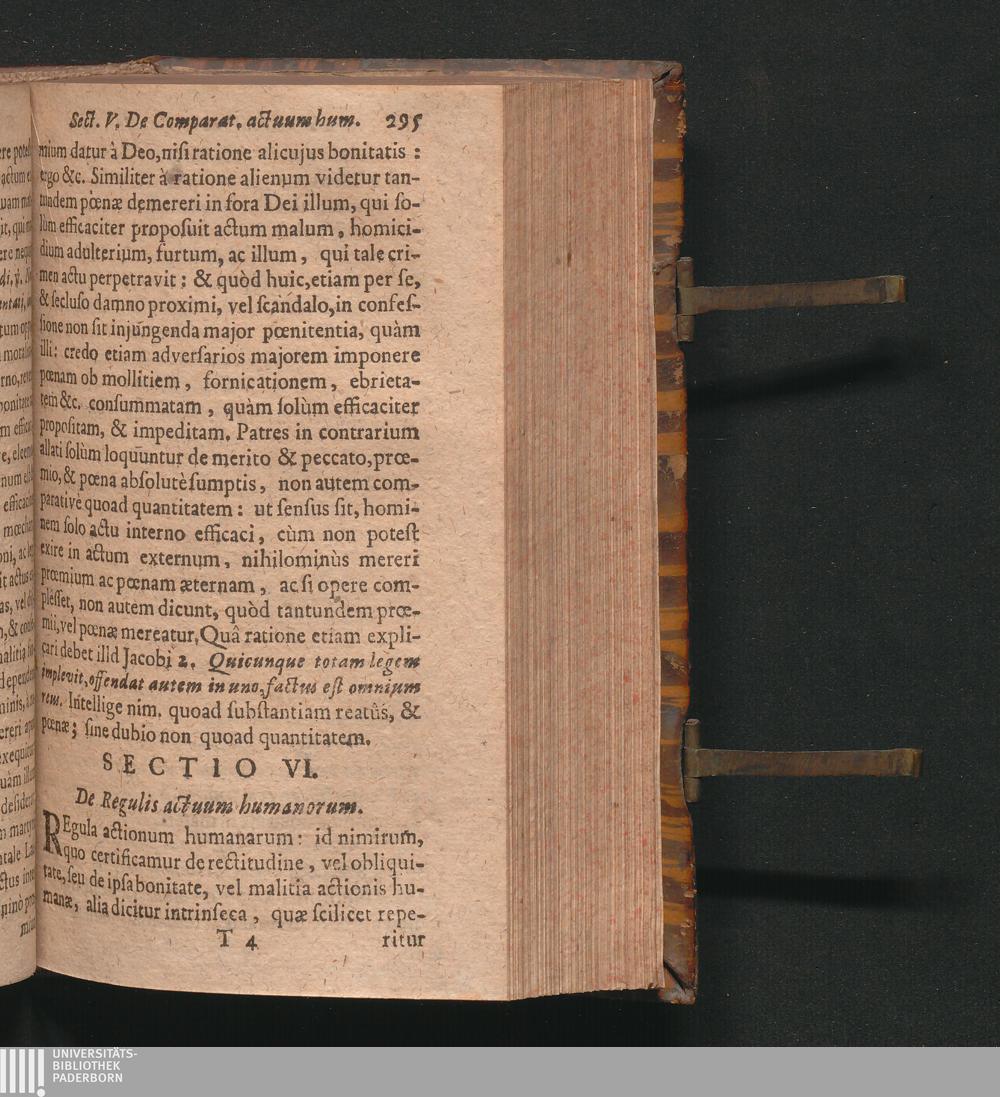 Sect. V. De Comparat. actuum hum. 295
mium datur à Deo, nisi ratione alicujus bonitatis :
ergo &c. Similiter à ratione alienum videtur tan-
tundem pœnæ demereri in fora Dei illum, qui so-
lùm efficaciter proposuit actum malum, homici-
dium adulterium, furtum, ac illum, qui tale cri-
men actu perpetravit : & quòd huic, etiam per se,
& secluso damno proximi, vel scandalo, in confes-
sione non sit injungenda major pœnitentia, quàm
illi : credo etiam adversarios majorem imponere
pœnam ob mollitiem, fornicationem, ebrieta-
tem &c. consummatam, quàm solùm efficaciter
propositam, & impeditam. Patres in contrarium
allati solùm loquuntur de merito & peccato, prœ-
mio, & pœna absolutè sumptis, non autem com-
parativè quoad quantitatem : ut sensus sit, homi-
nem solo actu interno efficaci, cùm non potest
exire in actum externum, nihilominùs mereri
prœmium ac pœnam æternam, ac si opere com-
plesset, non autem dicunt, quòd tantundem prœ-
mii, vel pœnæ mereatur. Quâ ratione etiam expli-
cari debet illd Jacobi 2. Quicunque totam legem
implevit, offendat autem in uno, factus est omnium
reus. Intellige nim. quoad substantiam reatûs, &
pœnæ ; sine dubio non quoad quantitatem.
SECTIO VI.
De Regulis actuum humanorum.
REgula actionum humanarum : id nimirum,
quo certificamur de rectitudine, vel obliqui-
tate, seu de ipsa bonitate, vel malitia actionis hu-
manæ, alia dicitur intrinseca, quæ scilicet repe-
T 4 ritur
UNIVERSITÄTS-
BIBLIOTHEK
PADERBORN